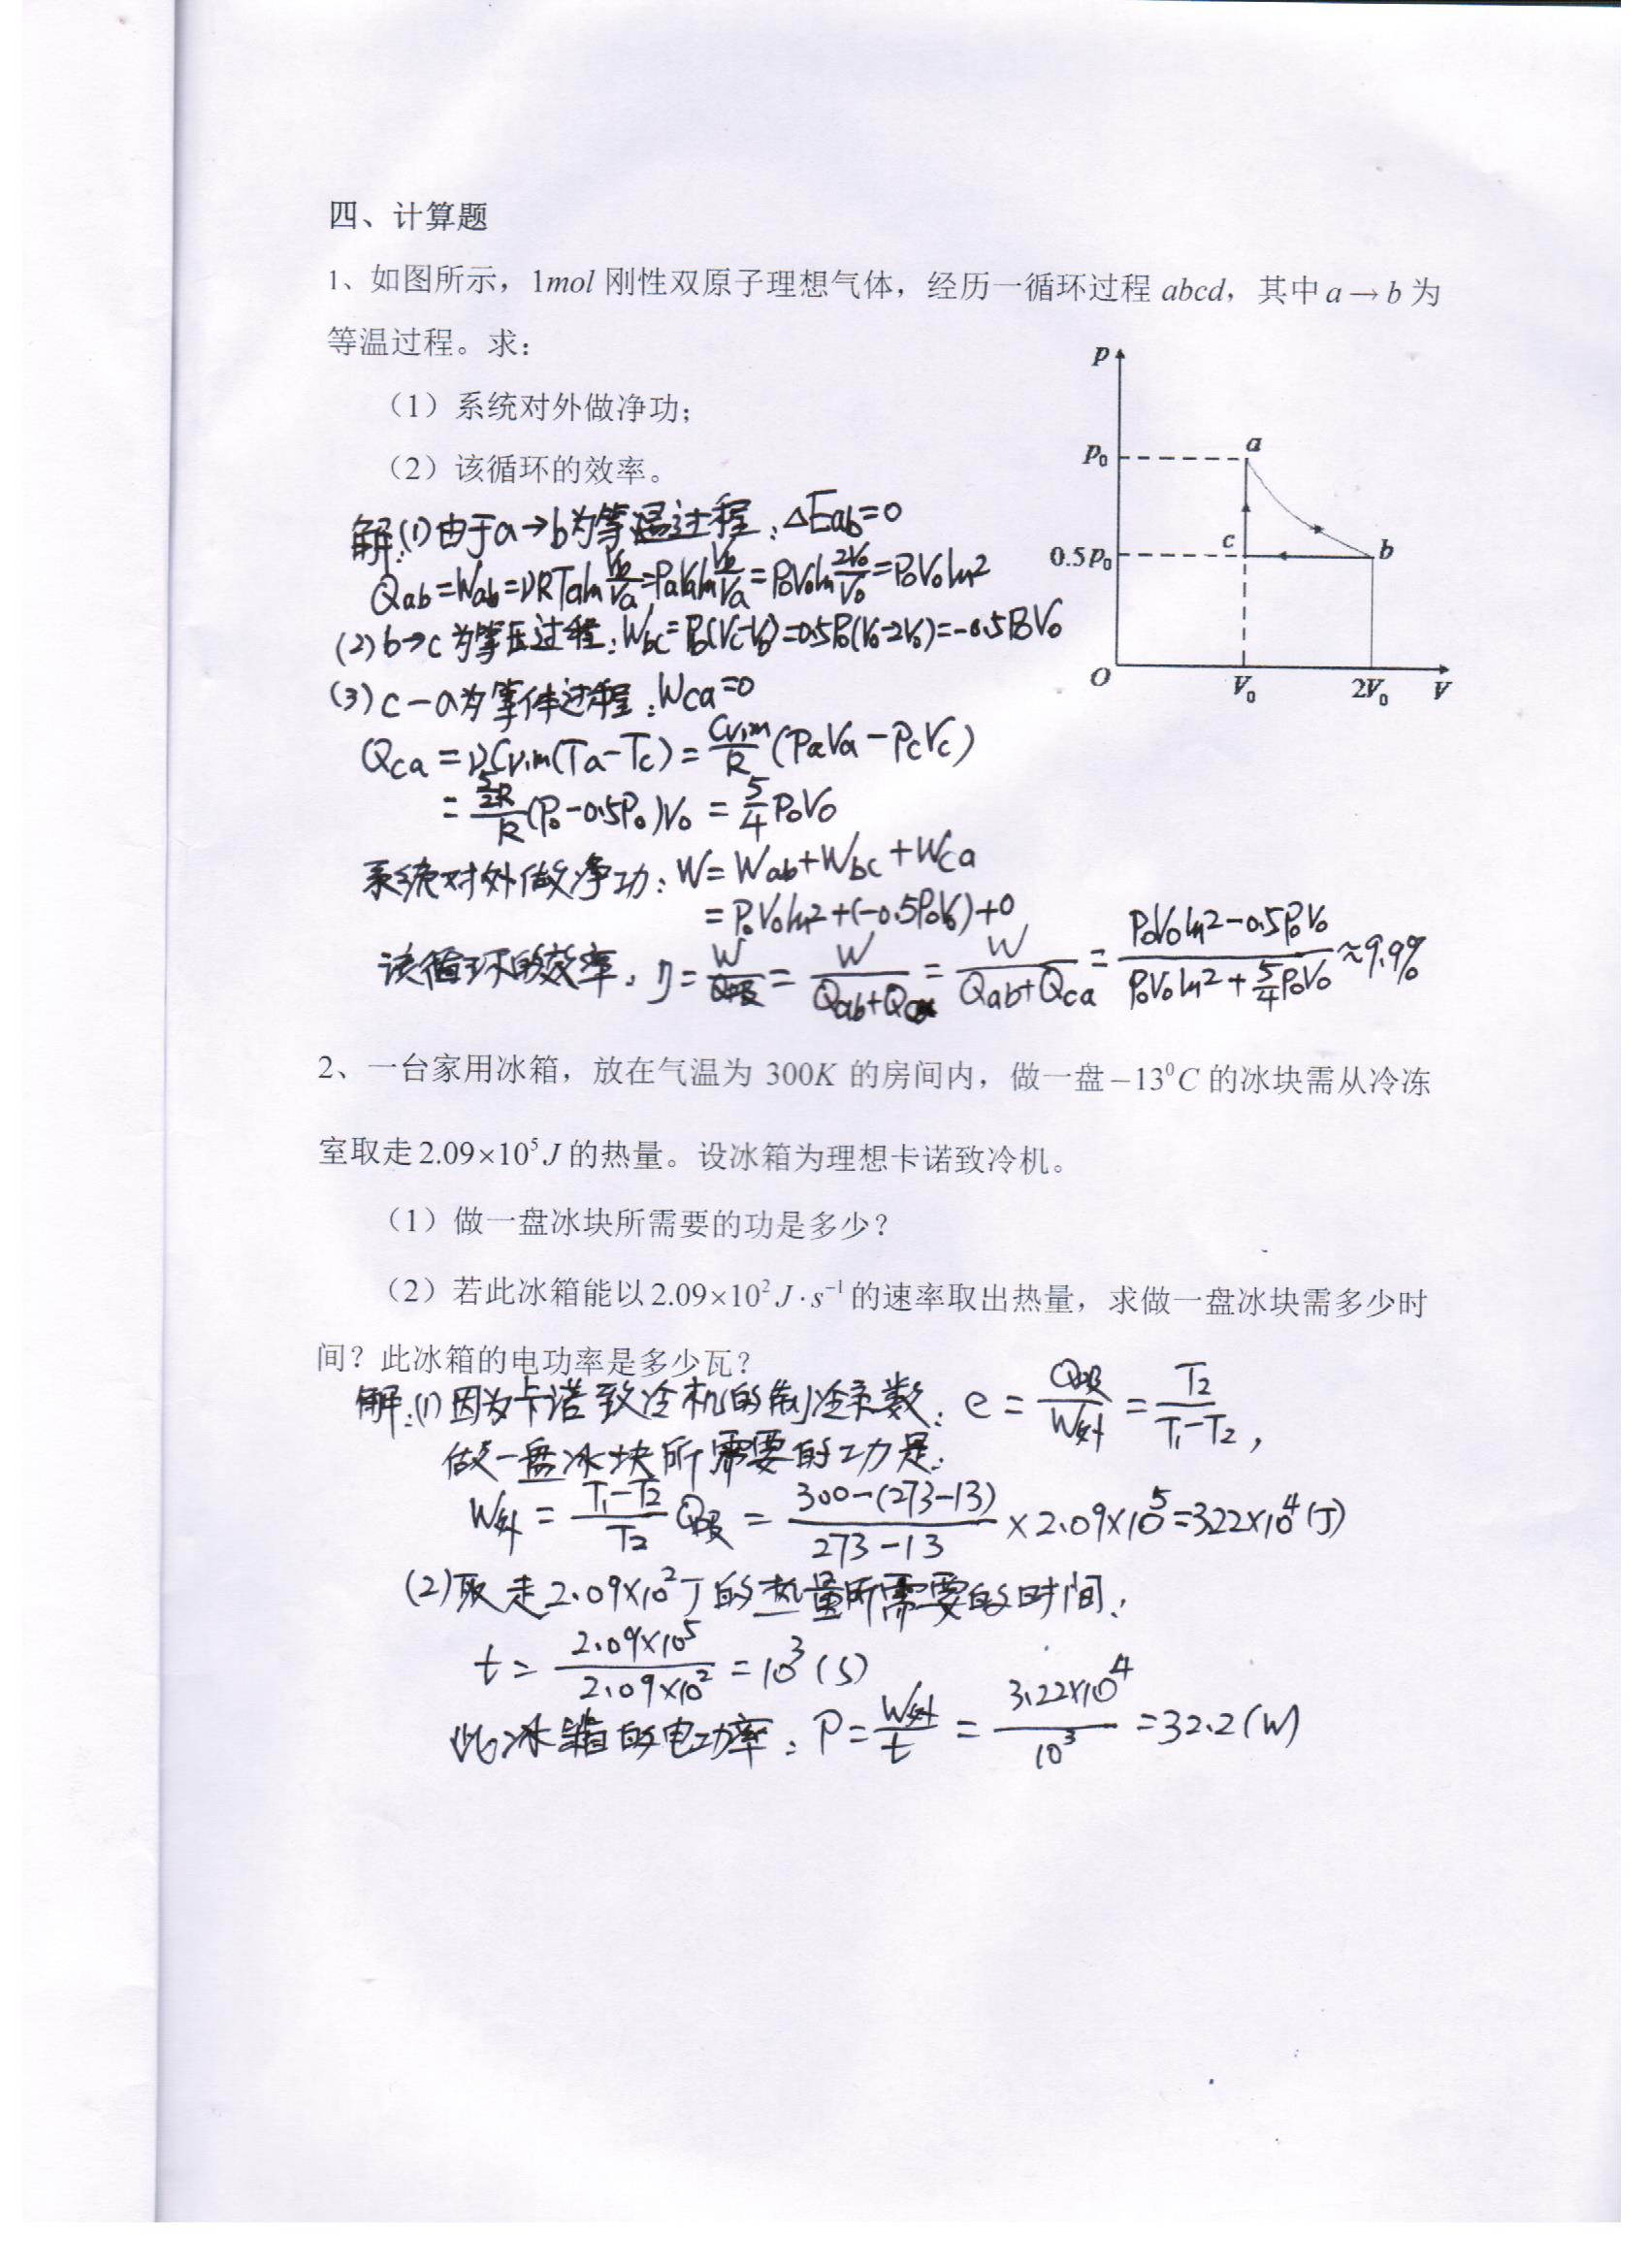 四、计算题
1、如图所示，1mol 刚性双原子理想气体，经历一循环过程 abcd，其中 a → b 为
等温过程。求：
（1）系统对外做净功；
（2）该循环的效率。
p
p₀
a
c
b
0.5p₀
O
V₀
2V₀
V
解:(1)由于a→b为等温过程：ΔEab=0
Qab=Wab=νRTaln Vb/Va=PaValn Vb/Va=P₀V₀ln 2V₀/V₀=P₀V₀ln2
(2)b→c为等压过程：Wbc=Pb(Vc-Vb)=0.5P₀(V₀-2V₀)=-0.5P₀V₀
(3)c-a为等体过程：Wca=0
Qca=νCv,m(Ta-Tc)=Cv,m/R(PaVa-PcVc)
=5/2R/R(P₀-0.5P₀)V₀=5/4P₀V₀
系统对外做净功：W=Wab+Wbc+Wca
=P₀V₀ln2+(-0.5P₀V₀)+0
该循环的效率：η=W/Q吸=W/Qab+Qca=W/Qab+Qca=P₀V₀ln2-0.5P₀V₀/P₀V₀ln2+5/4P₀V₀≈9.9%
2、一台家用冰箱，放在气温为 300K 的房间内，做一盘 −13⁰C 的冰块需从冷冻
室取走 2.09×10⁵ J 的热量。设冰箱为理想卡诺致冷机。
（1）做一盘冰块所需要的功是多少？
（2）若此冰箱能以 2.09×10² J·s⁻¹ 的速率取出热量，求做一盘冰块需多少时
间？此冰箱的电功率是多少瓦？
解:(1)因为卡诺致冷机的制冷系数：e=Q吸/W外=T₂/T₁-T₂，
做一盘冰块所需要的功是：
W外=T₁-T₂/T₂ Q吸=300-(273-13)/273-13×2.09×10⁵=3.22×10⁴(J)
(2)取走2.09×10²J的热量所需要的时间：
t=2.09×10⁵/2.09×10²=10³(s)
此冰箱的电功率：P=W外/t=3.22×10⁴/10³=32.2(W)